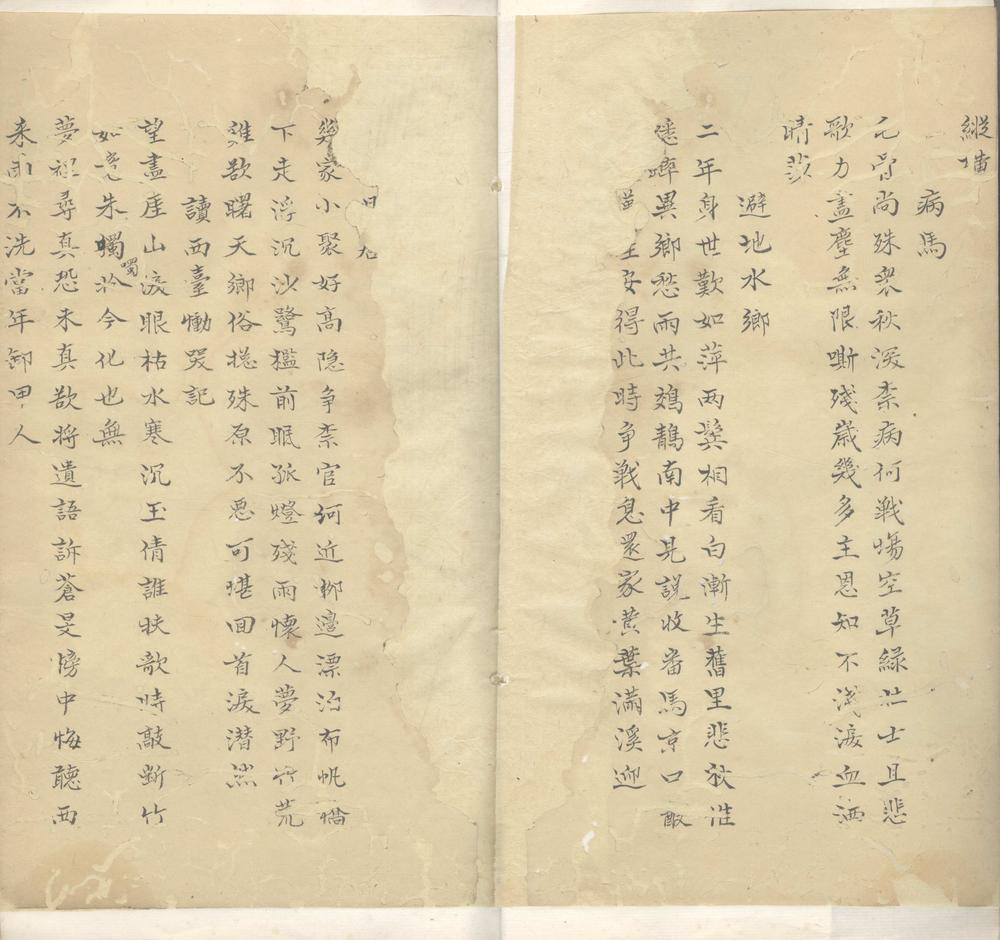 縱橫
病馬
毛骨尚殊衆秋深柰病何戰塲空草綠壯士且悲
歌力盡塵無限嘶殘歲幾多主恩知不淺淚血洒
晴莎
避地水鄉
二年身世歎如萍兩鬢相看白漸生舊里悲秋淮
蟋蟀異鄉愁雨共鵁鶄南中見說收番馬京口
安得此時爭戰息還家黄葉滿溪迎
幾家小聚好高隐争柰官河近柳邉漂泊布帆檣
下走浮沉沙鷺檻前眠孤燈殘雨懷人夢野竹荒
雞欲曙天鄉俗揔殊原不惡可堪回首淚潸然
讀西臺慟哭記
望盡厓山淚眼枯水寒沉玉倩誰扶歌時敲斷竹
如意朱噣於今化也無
噣
夢裡尋真恐未真欲将遺語訴蒼旻牕中晦聽西
来雨不洗當年卸甲人